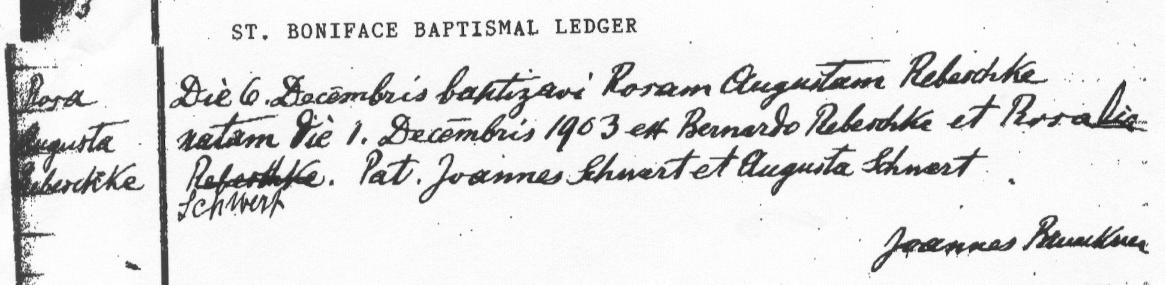 ST. BONIFACE BAPTISMAL LEDGER
Rosa
Augusta
Rebeschke
Die 6. Decembris baptizavi Rosam Augustam Rebeschke
natam die 1. Decembris 1903 ex Bernardo Rebeschke et Rosalia
Rebeschke. Pat. Joannes Schwert et Augusta Schwert
Schwert
Joannes